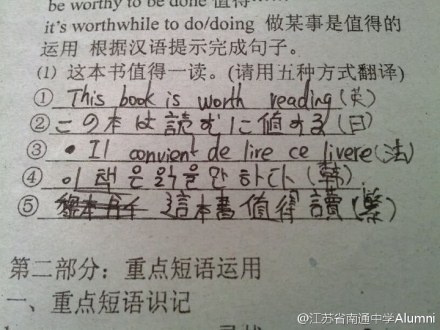 be worthy to be done 值得
it's worthwhile to do/doing 做某事是值得的
运用 根据汉语提示完成句子。
(1) 这本书值得一读。(请用五种方式翻译)
① This book is worth reading(英)
② この本は読むに値する(日)
③ • Il convient de lire ce livere(法)
④ 이 책은 읽을만 하다 (韩)
⑤ 這本書值得讀(繁)
第二部分：重点短语运用
一、重点短语识记
@江苏省南通中学Alumni